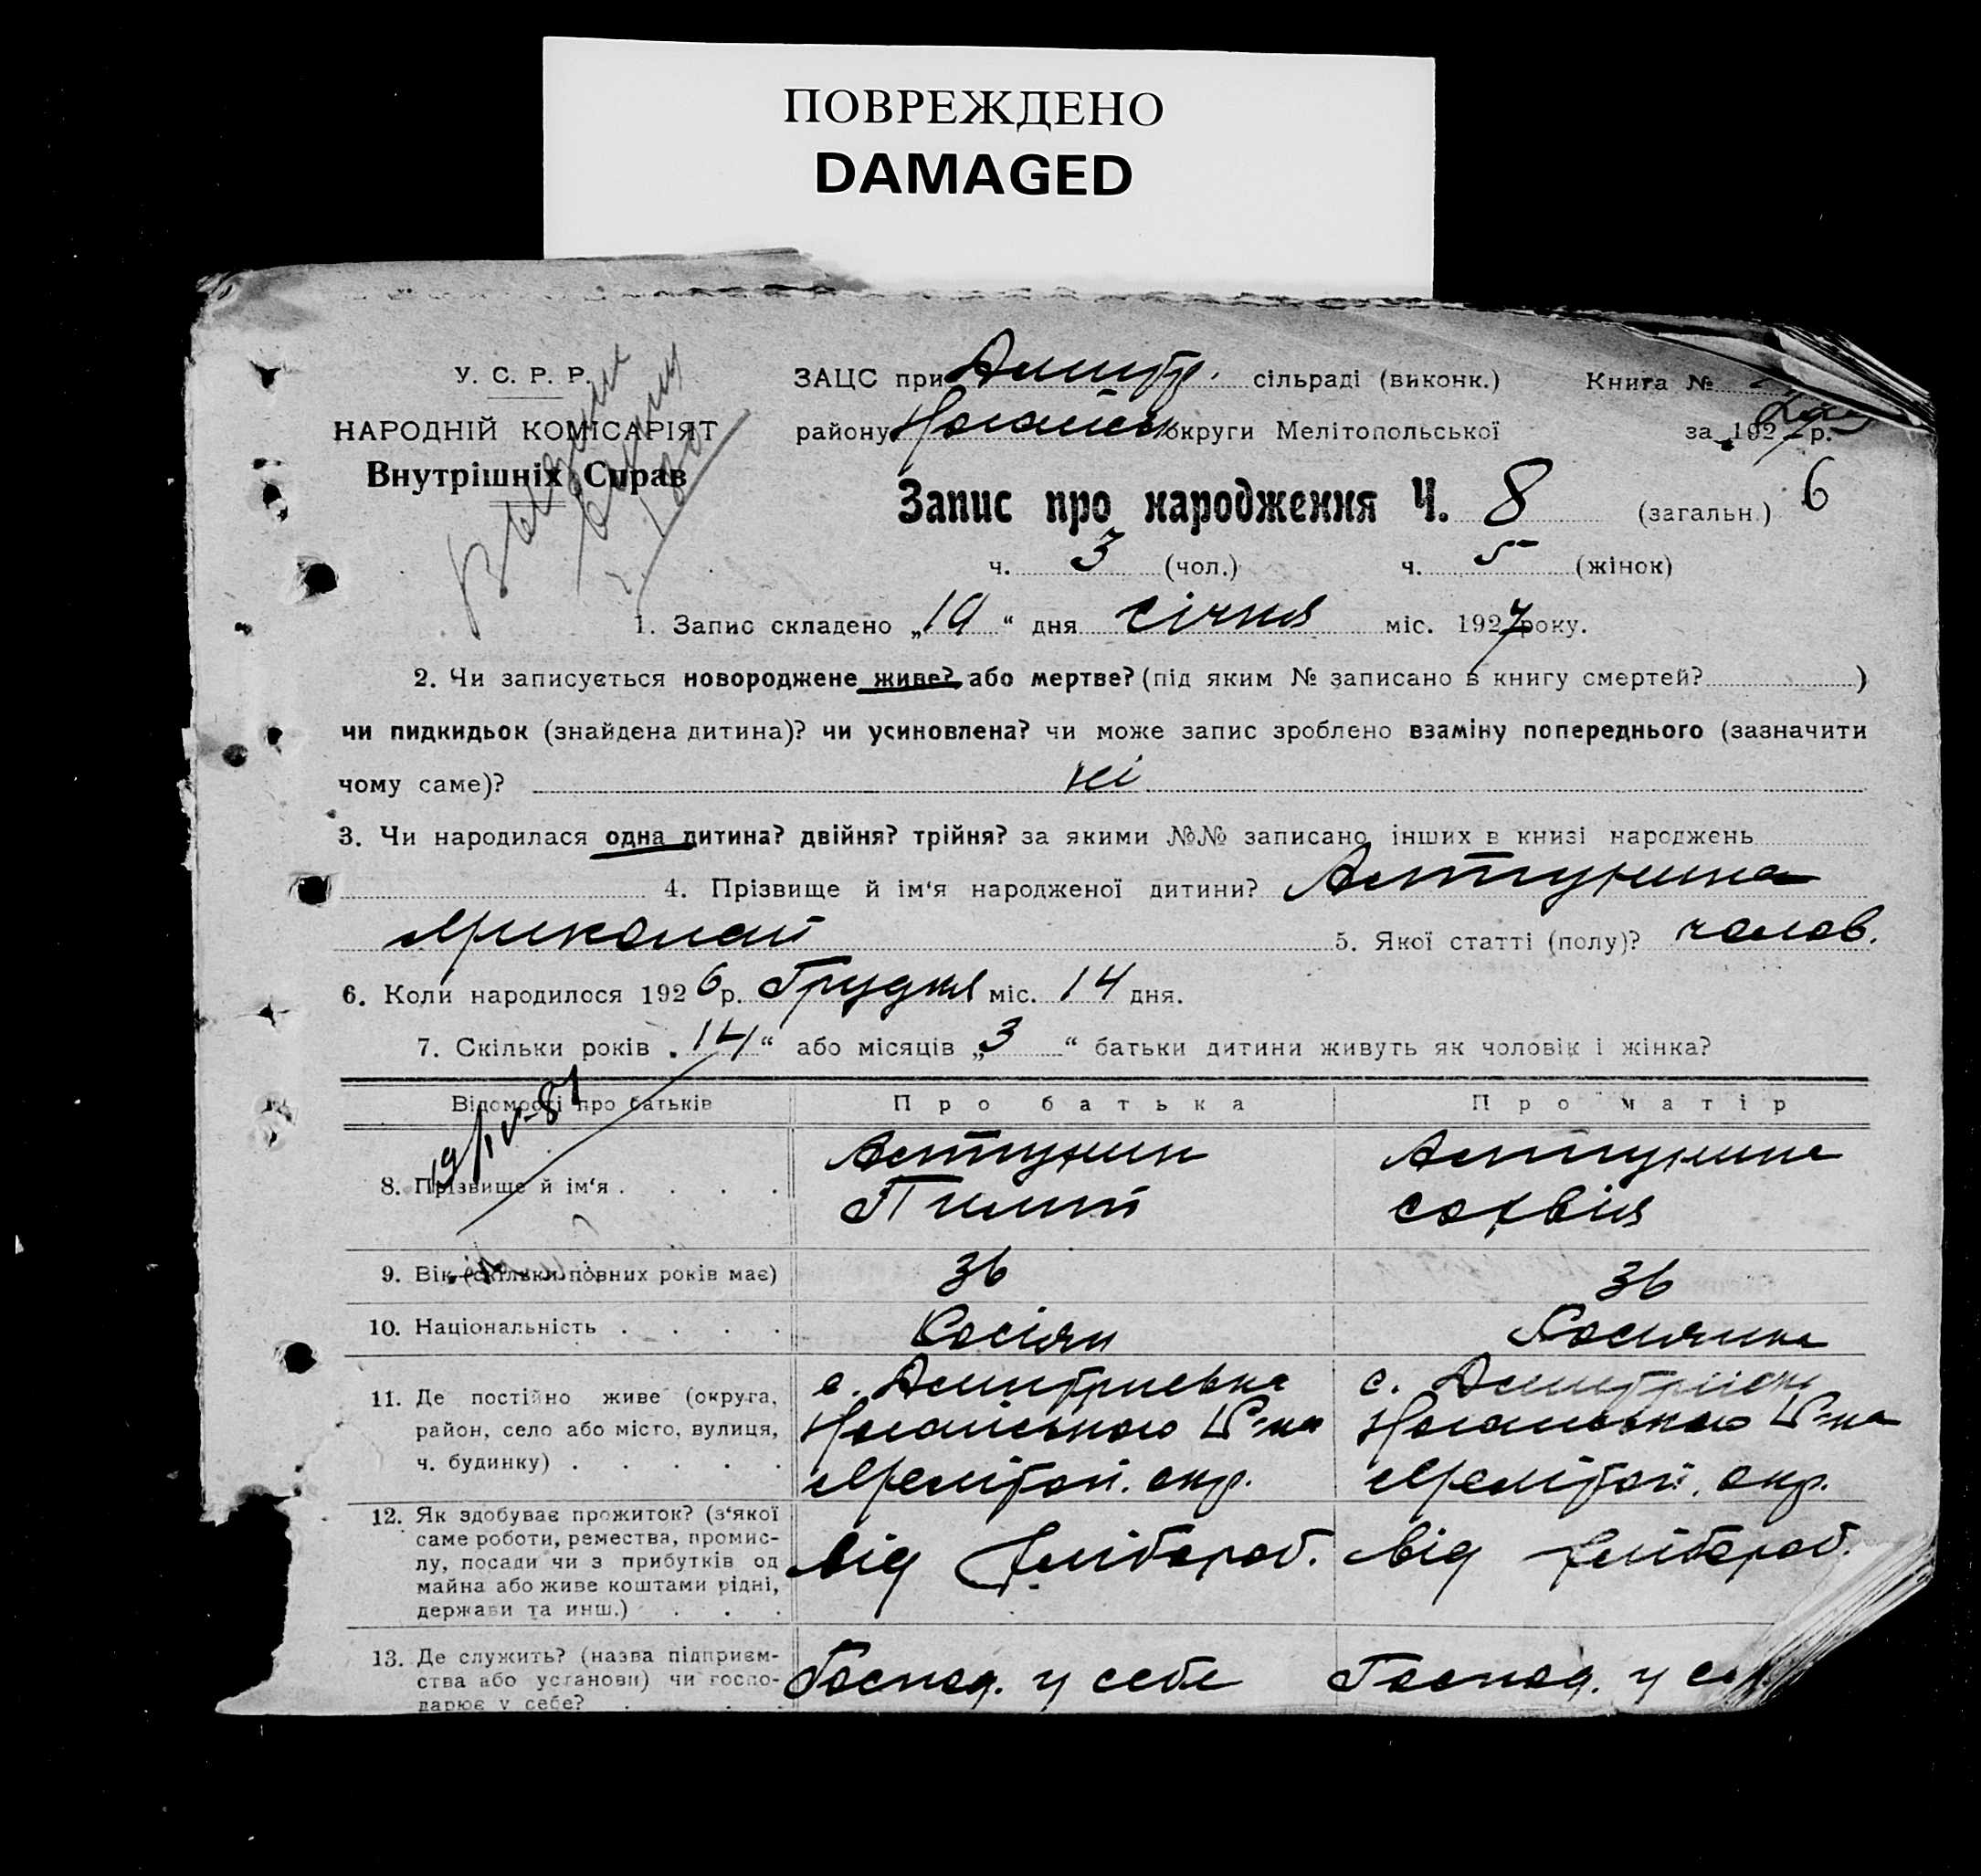 ПОВРЕЖДЕНО
DAMAGED
У. С. Р. Р.
НАРОДНІЙ КОМІСАРІЯТ
Внутрішніх Справ
ЗАЦС при Дмитр. сільраді (виконк.) Книга №
району Ногайськ округи Мелітопольської за 1927 р.
Запис про народження Ч. 8 (загальн.) 6
ч. 3 (чол.) ч. 5 (жінок)
1. Запис складено „19“ дня січня міс. 1927 року.
2. Чи записується новороджене живе? або мертве? (під яким № записано в книгу смертей? )
чи пидкидьок (знайдена дитина)? чи усиновлена? чи може запис зроблено взаміну попереднього (зазначити
чому саме)? ні
3. Чи народилася одна дитина? двійня? трійня? за якими №№ записано інших в книзі народжень
4. Прізвище й ім‘я народженої дитини?
Миколай 5. Якої статті (полу)? чолов.
6. Коли народилося 1926 р. Грудня міс. 14 дня.
7. Скільки років „14“ або місяців „3“ батьки дитини живуть як чоловік і жінка?
Відомості про батьків Про батька Про матір
19/IV-81
8. Прізвище й ім‘я . . . .
Пилип Софвія
9. Вік (скільки повних років має) 36 36
10. Національність . . . . Росіян Росиянка
11. Де постійно живе (округа, с. Дмитриевка с. Дмитрієвк
район, село або місто, вулиця, Ногайського Р-на Ногайського Р-на
ч. будинку) . . . . . Меліտոп. окр. Меліտոп. окр.
12. Як здобуває прожиток? (з‘якої
саме роботи, ремества, промис-
лу, посади чи з прибутків од від хлібороб. від хлібороб.
майна або живе коштами рідні,
держави та инш.) . . .
13. Де служить? (назва підприєм-
ства або установи) чи госпо- Господ. у себе Господ. у се
дарює у себе? . . .